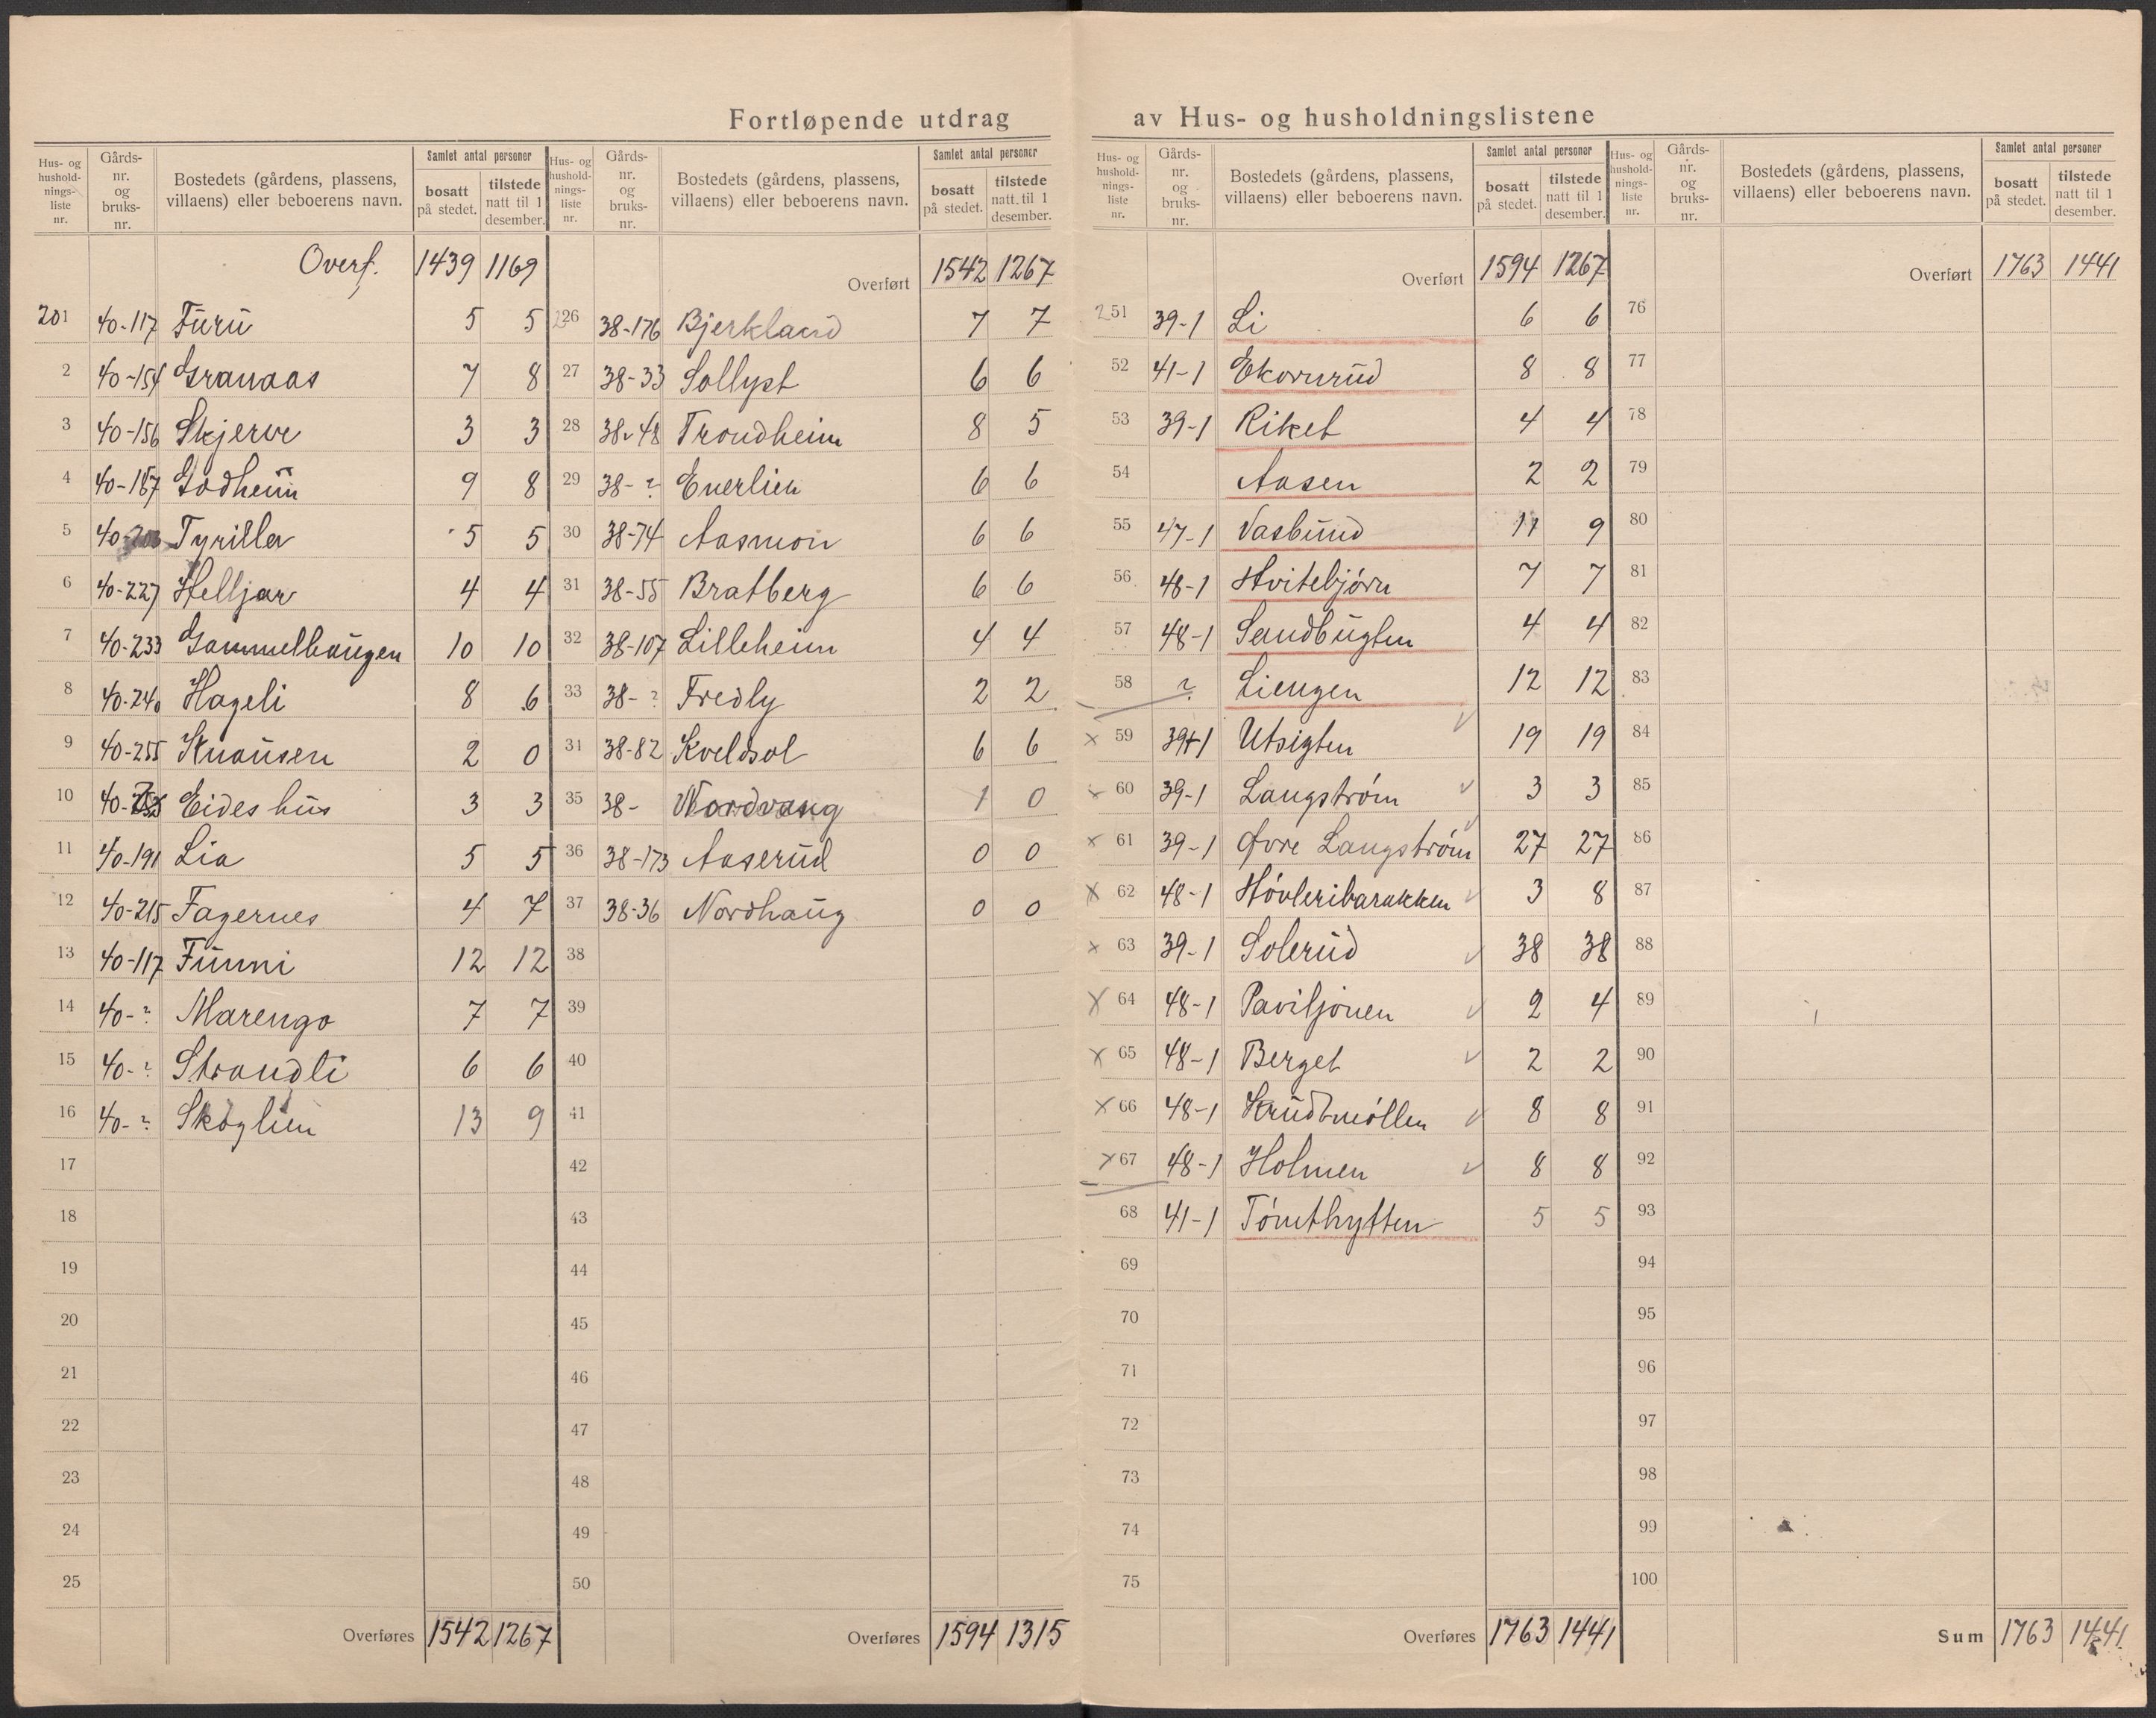 Fortløpende utdrag av Hus- og husholdningslistene
Hus- og husholdnings-liste nr. Gårds-nr. og bruks-nr. Bostedets (gårdens, plassens, villaens) eller beboerens navn. Samlet antal personer bosatt på stedet. tilstede natt til 1 desember.
Overf. 1439 1169
201 40-117 Furu 5 5
2 40-154 Granaas 7 8
3 40-156 Skjerve 3 3
4 40-187 Godheim 9 8
5 40- Tyrilla 5 5
6 40-227 Helljar 4 4
7 40-233 Gammelhaugen 10 10
8 40-240 Hageli 8 6
9 40-255 Knausen 2 0
10 40- Eideshus 3 3
11 40-191 Lia 5 5
12 40-215 Fagernes 4 7
13 40-117 Funni 12 12
14 40-? Marengo 7 7
15 40-? Strandli 6 6
16 40-? Skoglien 13 9
17
18
19
20
21
22
23
24
25
Overføres 1542 1267
Hus- og husholdnings-liste nr. Gårds-nr. og bruks-nr. Bostedets (gårdens, plassens, villaens) eller beboerens navn. Samlet antal personer bosatt på stedet. tilstede natt til 1 desember.
Overført 1542 1267
226 38-176 Bjerkland 7 7
27 38-33 Sollyst 6 6
28 38-48 Trondheim 8 5
29 38-? Enerlien 6 6
30 38-74 Aasmon 6 6
31 38-55 Bratberg 6 6
32 38-107 Lilleheim 4 4
33 38-? Fredly 2 2
31 38-82 Kveldsol 6 6
35 38- Nordvang 1 0
36 38-173 Aaserud 0 0
37 38-36 Nordhaug 0 0
38
39
40
41
42
43
44
45
46
47
48
49
50
Overføres 1594 1315
Hus- og husholdnings-liste nr. Gårds-nr. og bruks-nr. Bostedets (gårdens, plassens, villaens) eller beboerens navn. Samlet antal personer bosatt på stedet. tilstede natt til 1 desember.
Overført 1594 1267
251 39-1 Li 6 6
52 41-1 Ekornrud 8 8
53 39-1 Riket 4 4
54 Aasen 2 2
55 47-1 Vasbund 11 9
56 48-1 Hvitebjørn 7 7
57 48-1 Sandbugten 4 4
58 ? Liengen 12 12
x 59 39-1 Utsigten 19 19
x 60 39-1 Langstrøm 3 3
x 61 39-1 Øvre Langstrøm 27 27
x 62 48-1 Høvleribarakken 3 8
x 63 39-1 Solerud 38 38
x 64 48-1 Paviljonen 2 4
x 65 48-1 Berget 2 2
x 66 48-1 Krudtmøllen 8 8
x 67 48-1 Holmen 8 8
68 41-1 Tømthytten 5 5
69
70
71
72
73
74
75
Overføres 1763 1441
Hus- og husholdnings-liste nr. Gårds-nr. og bruks-nr. Bostedets (gårdens, plassens, villaens) eller beboerens navn. Samlet antal personer bosatt på stedet. tilstede natt til 1 desember.
Overført 1763 1441
76
77
78
79
80
81
82
83
84
85
86
87
88
89
90
91
92
93
94
95
96
97
98
99
100
Sum 1763 1441